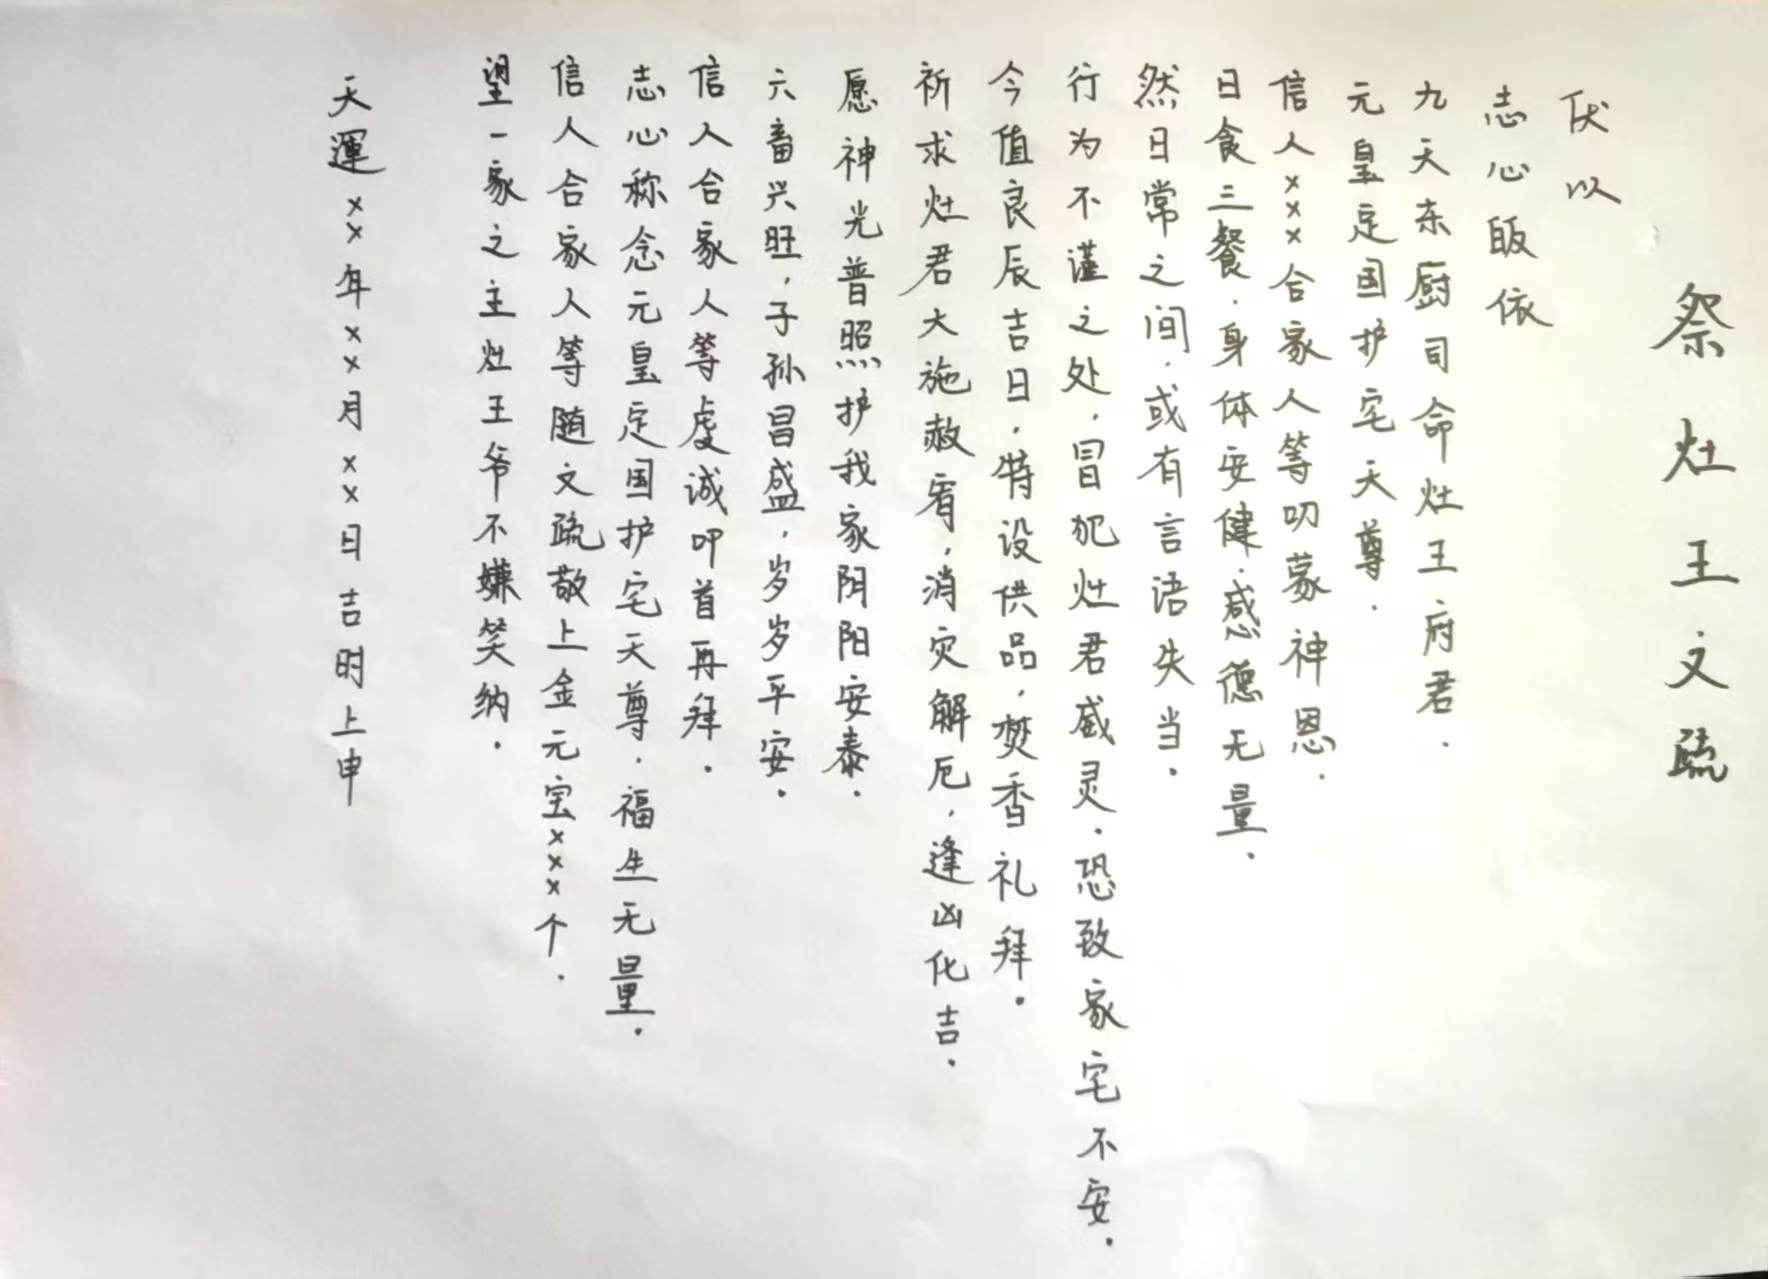 祭灶王文疏
伏以
志心皈依
九天东厨司命灶王府君.
元皇定国护宅天尊.
信人×××合家人等叨蒙神恩.
日食三餐.身体安健.感德无量.
然日常之间.或有言语失当.
行为不谨之处,冒犯灶君威灵.恐致家宅不安.
今值良辰吉日,特设供品,焚香礼拜.
祈求灶君大施赦宥,消灾解厄,逢凶化吉.
愿神光普照护我家阴阳安泰.
六畜兴旺,子孙昌盛,岁岁平安.
信人合家人等虔诚叩首再拜.
志心称念元皇定国护宅天尊.福生无量.
信人合家人等随文疏敬上金元宝×××个.
望一家之主灶王爷不嫌笑纳.
天運××年××月××日吉时上申